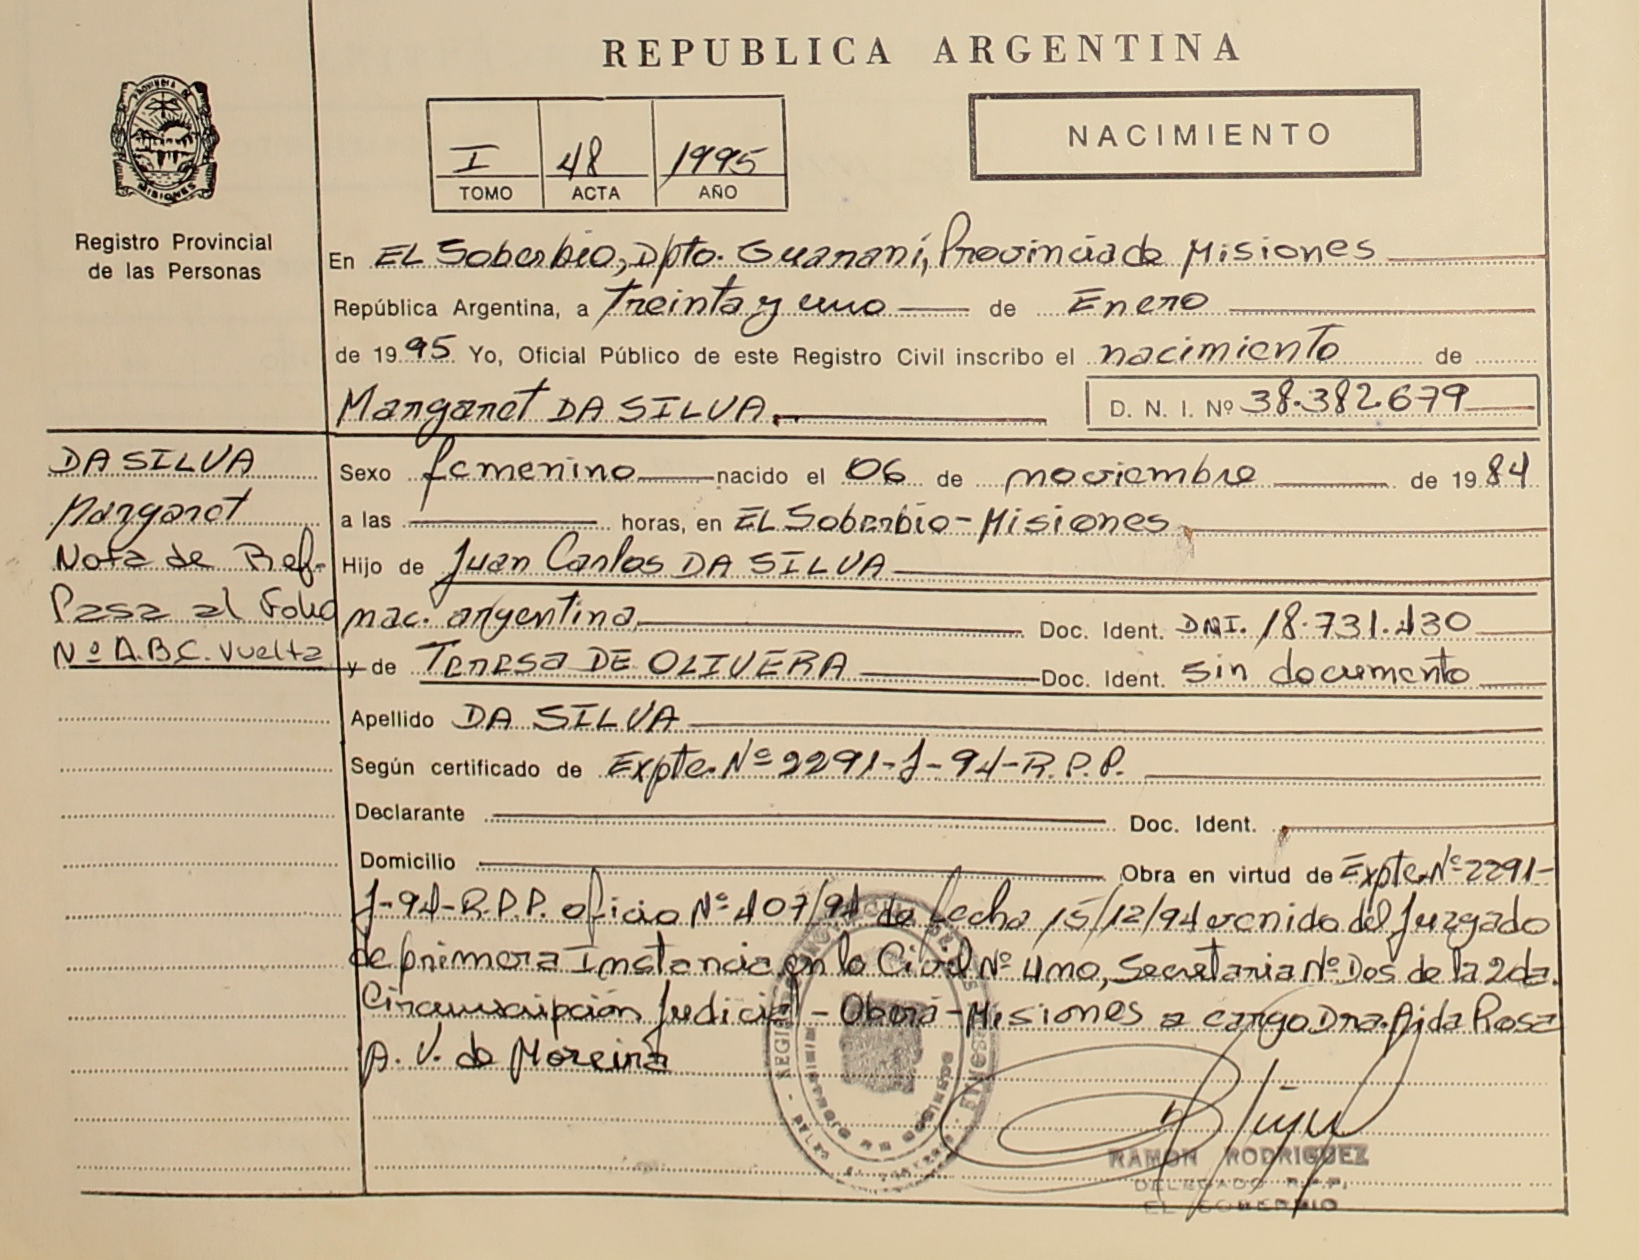 REPUBLICA ARGENTINA
PROVINCIA DE MISIONES
I 48 1995
TOMO ACTA AÑO
NACIMIENTO
Registro Provincial
de las Personas
En EL Soberbio, Dpto. Guaraní, Provincia de Misiones
República Argentina, a Treinta y uno de Enero
de 1995 Yo, Oficial Público de este Registro Civil inscribo el nacimiento de
Margaret DA SILVA.
D. N. I. Nº 38.382.679
DA SILVA
Margaret
Nota de Ref.
Pasa al Folio
Nº A.B.C. Vuelta
Sexo femenino nacido el 06 de noviembre de 1984
a las horas, en EL Soberbio - Misiones
Hijo de Juan Carlos DA SILVA
nac. argentina Doc. Ident. DNI. 18.731.430
y de Teresa DE OLIVERA Doc. Ident. sin documento
Apellido DA SILVA
Según certificado de Expte. Nº 2291-J-94-R.P.P.
Declarante Doc. Ident.
Domicilio Obra en virtud de Expte. Nº 2291-
J-94-R.P.P. oficio Nº 407/94 de fecha 15/12/94 venido del Juzgado
de primera Instancia en lo Civil Nº 4mo, Secretaria Nº Dos de la 2da.
Circunscripción Judicial - Oberá - Misiones a cargo Dra. Aida Rosa
A. V. de Moreira
RAMON RODRIGUEZ
DELEGADO R.P.P.
EL SOBERBIO